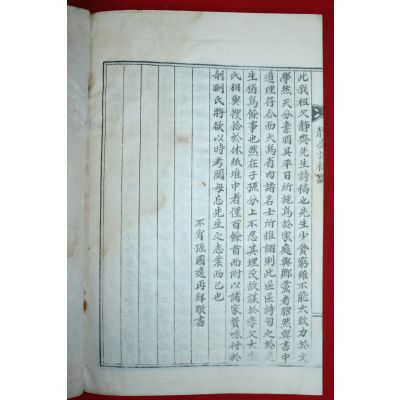 此我祖父靜齋先生詩稿也先生少貧窮雖不能大致力於文
學然天分素明其平日所境爲於家庭與鄕黨者脗然與書中
道理符合而大爲省內諸名士所推詡則此區區詩句之於先
生猶爲餘事也然在子孫分上不忍其堙没故謀於季父大
氏相與搜拾於休紙堆中者僅百餘首而附以諸家贊咏付於
剞劂氏將欲以時考閱毋忘先生之志業而已也
不肖孫國遠再拜敬書